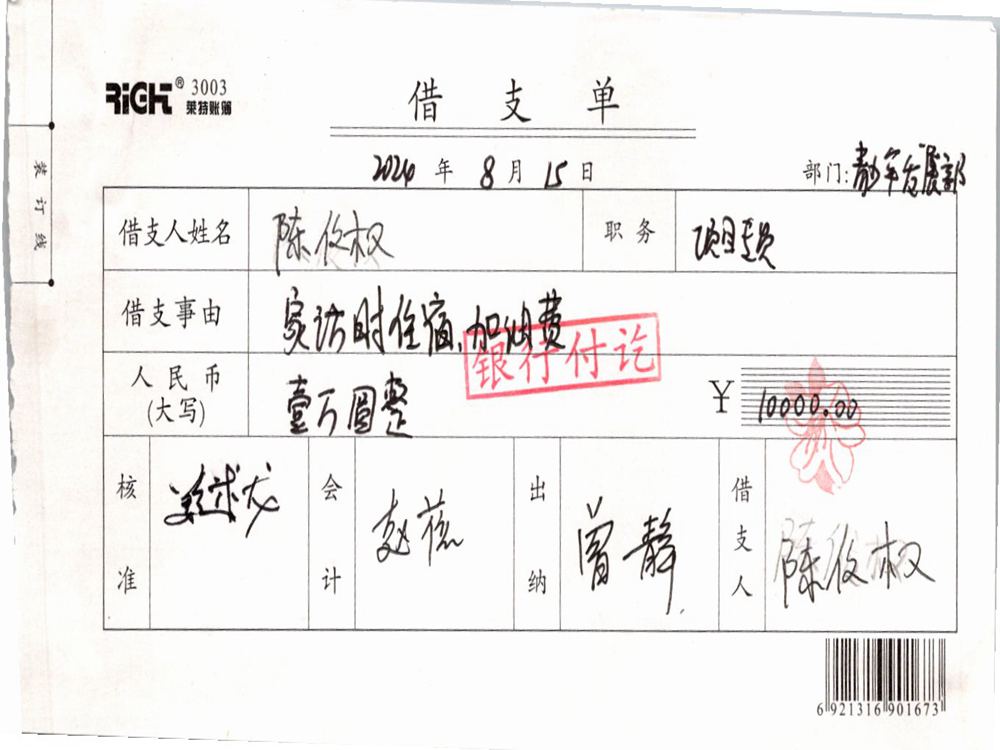 RiGHT® 3003
莱特账簿
借支单
2024年8月15日
部门:青少年发展部
装订线
借支人姓名 陈俊权 职务 项目专员
借支事由 家访时住宿、加油费
银行付讫
人民币(大写) 壹万圆整 ¥ 10000.00
核准 会计 赵蓓 出纳 曾静 借支人 陈俊权
6 921316 901673